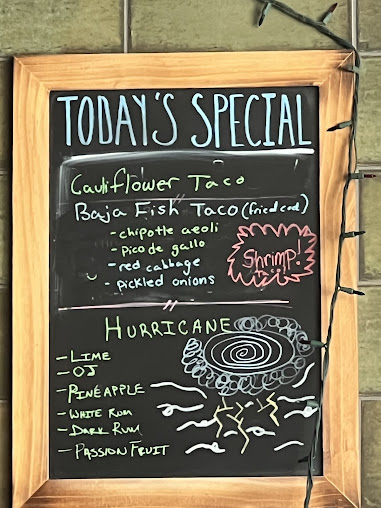 TODAY'S SPECIAL
Cauliflower Taco
Baja Fish Taco (fried cod)
- chipotte aeoli
- pico de gallo
- red cabbage
- pickled onions
Shrimp!
Taco
HURRICANE
- LIME
- OJ
- PINEAPPLE
- WHITE RUM
- DARK RUM
- PASSION FRUIT